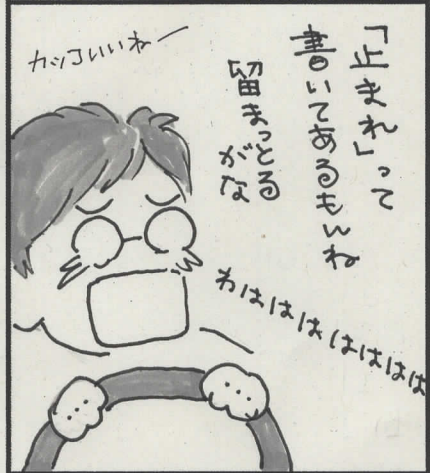 「止まれ」って
書いてあるもんね
留まっとる
がな
カッコいいねー
わはははははははは